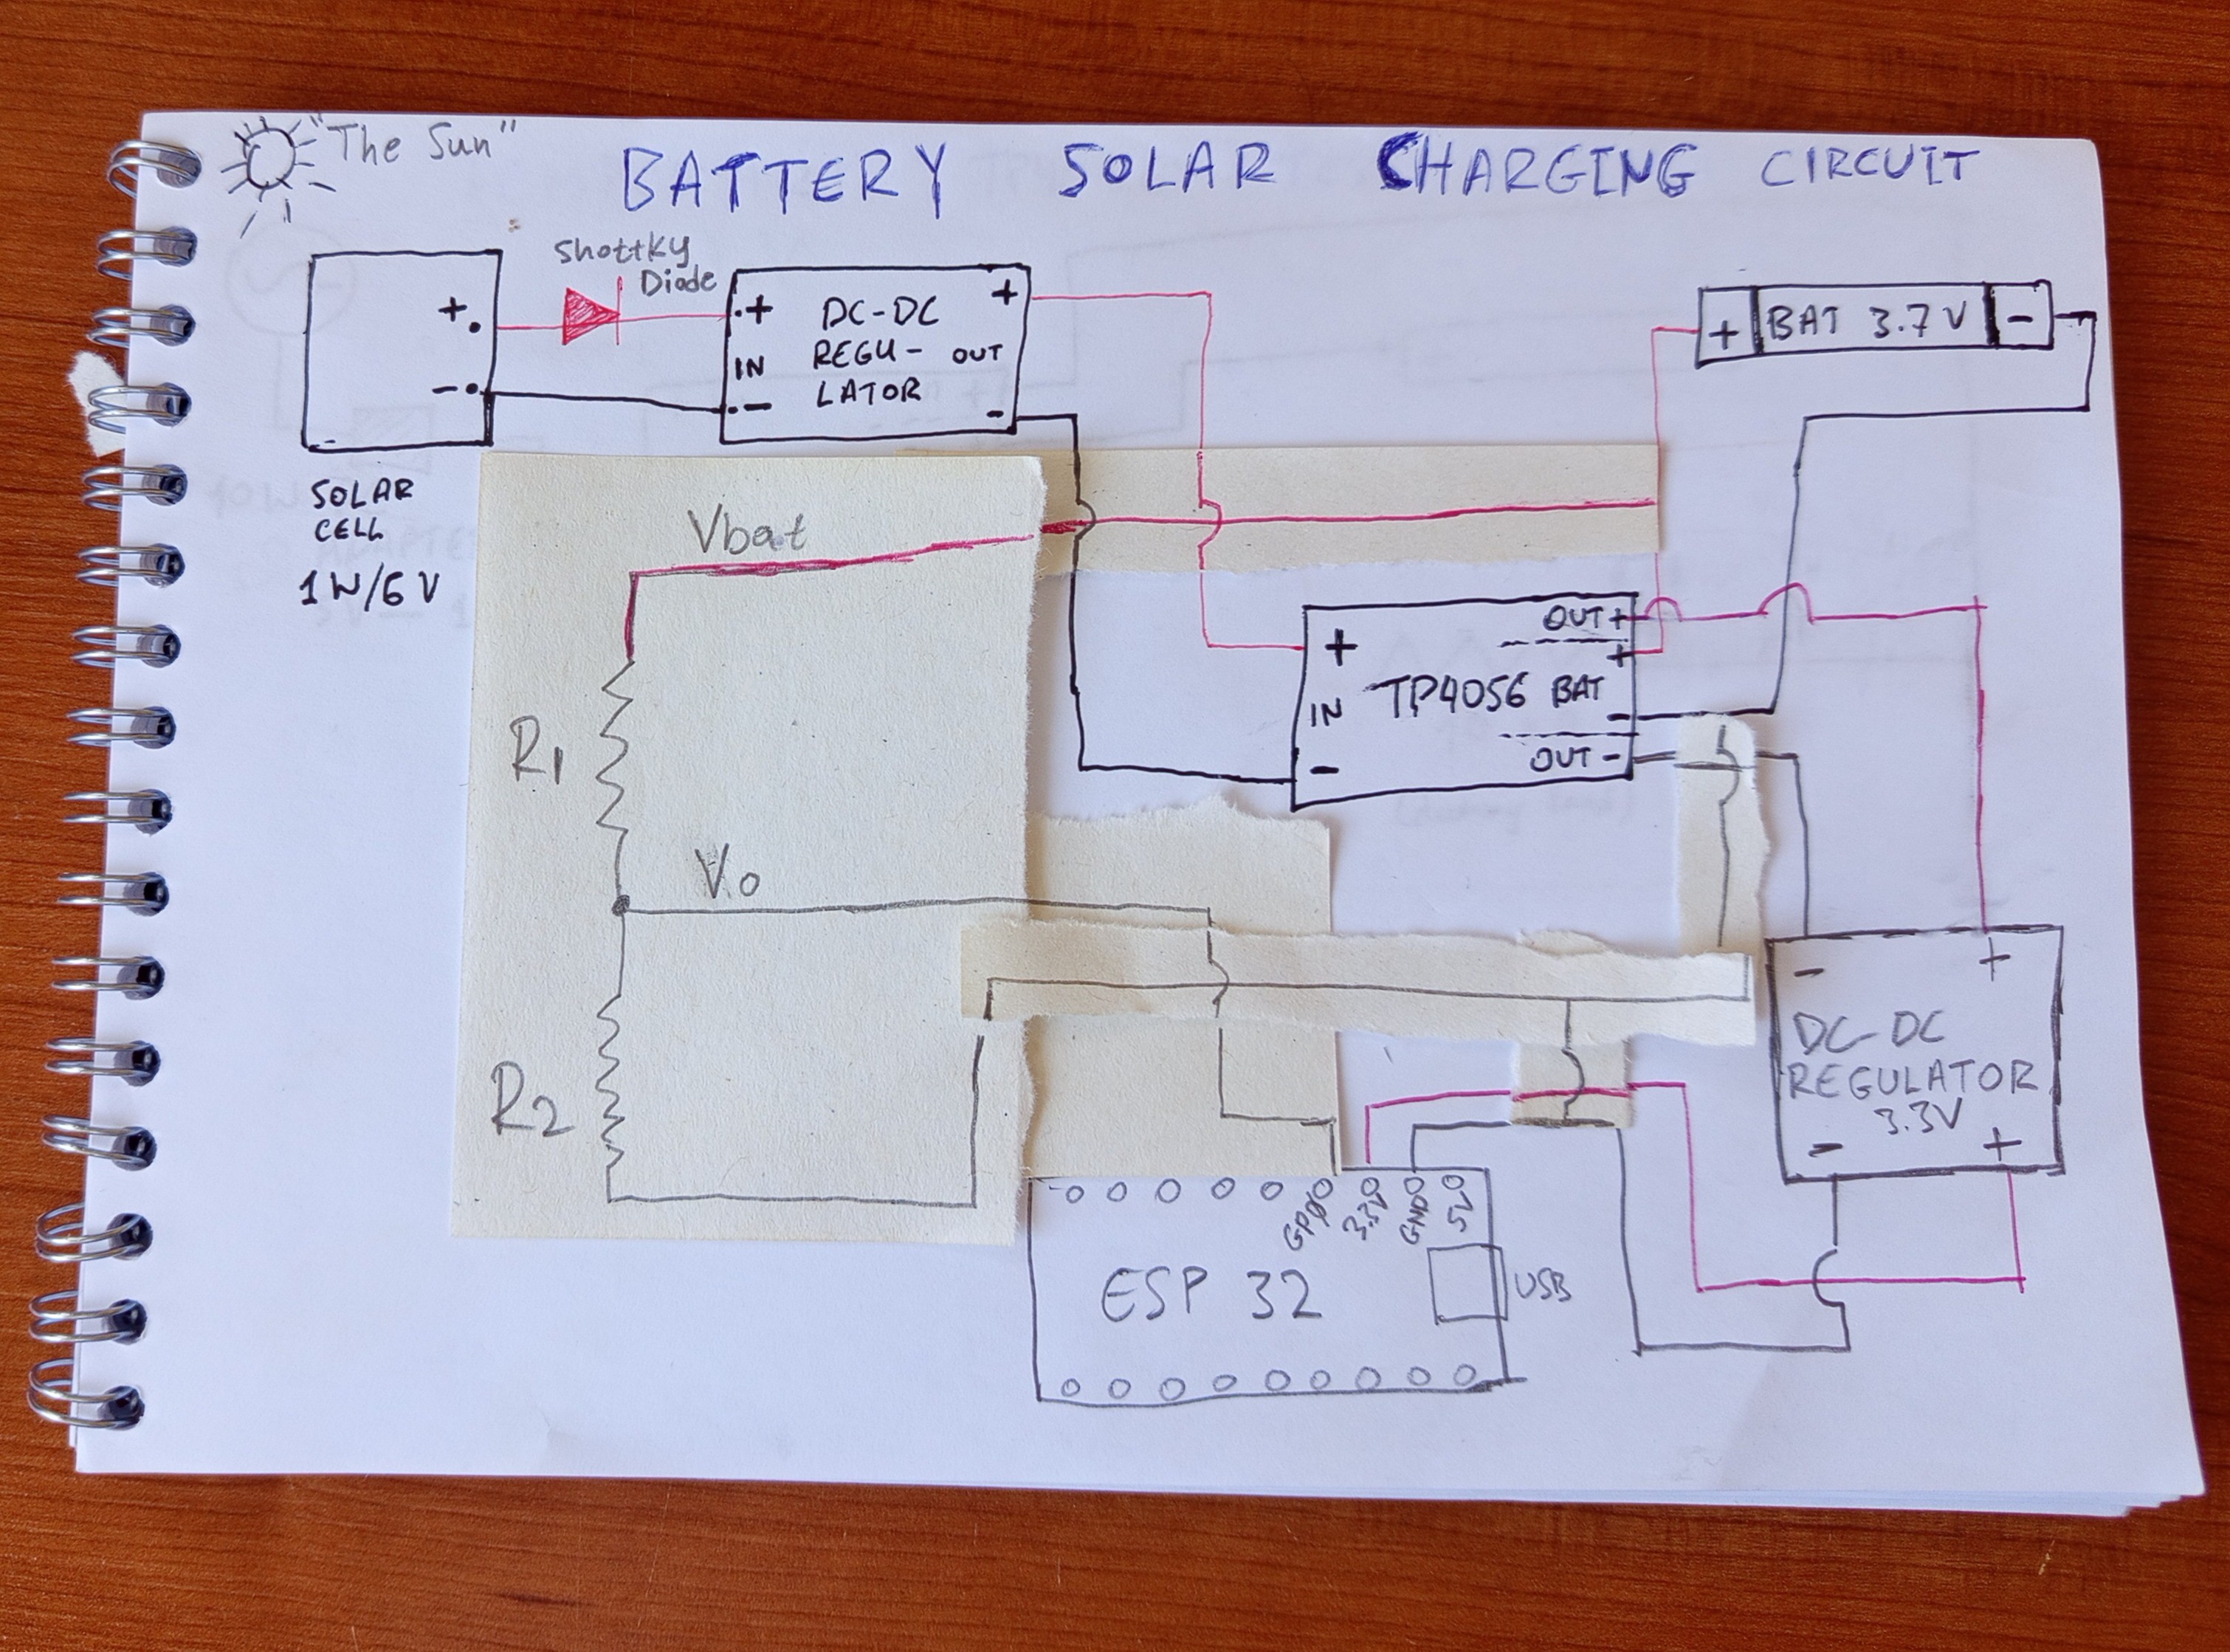 "The Sun"
BATTERY SOLAR CHARGING CIRCUIT
Shottky
Diode
+
-
SOLAR
CELL
1W/6V
+
IN
-
DC-DC
REGU-
LATOR
+
OUT
-
+ BAT 3.7V -
Vbat
R1
Vo
R2
+
IN
-
TP4056
OUT+
+
BAT
-
OUT -
- +
DC-DC
REGULATOR
3.3V
- +
3.3V
GND
5V
ESP 32
USB